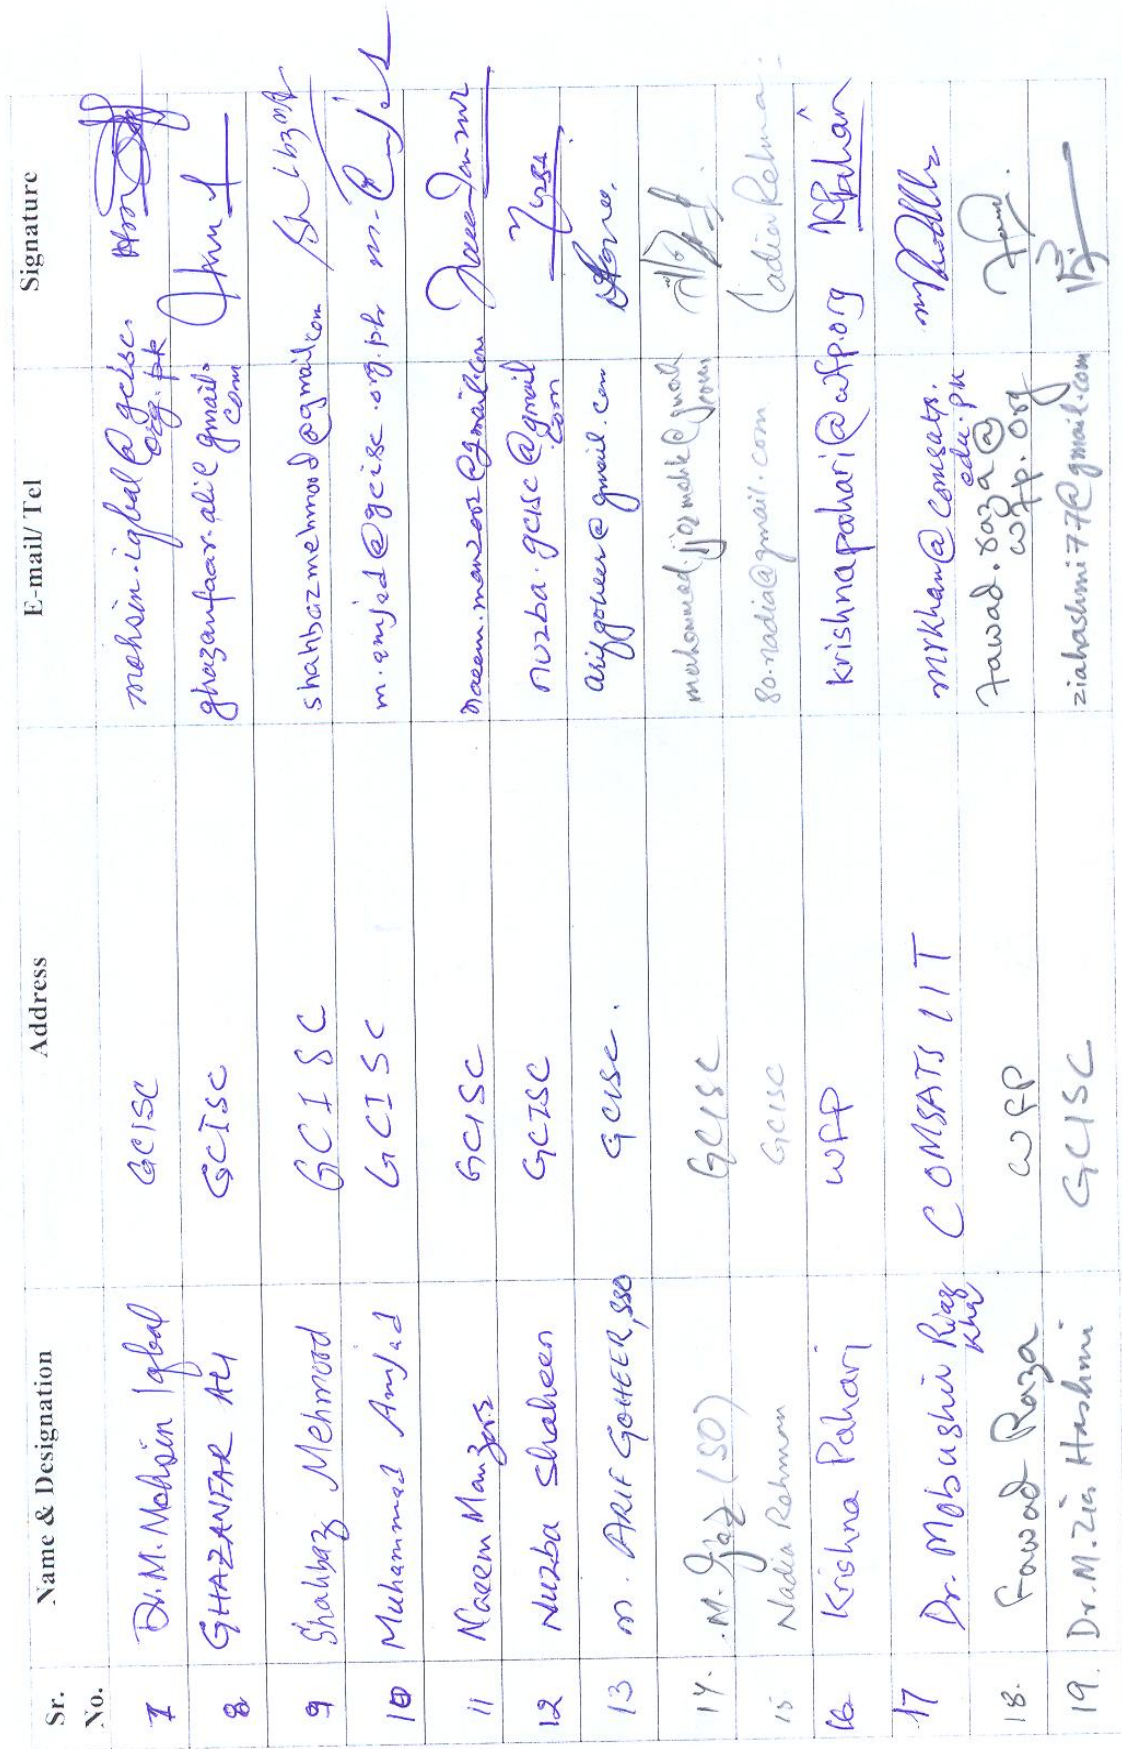 Sr. No. Name & Designation Address E-mail/ Tel Signature
7 Dr. M. Mohsin Iqbal GCISC mohsin.iqbal@gcisc.org.pk
8 GHAZANFAR ALI GCISC ghazanfaar.ali@gmail.com
9 Shahbaz Mehmood GCISC shahbazmehmood@gmail.com
10 Muhammad Amjad GCISC m.amjad@gcisc.org.pk
11 Naeem Manzoor GCISC naeem.manzoor@gmail.com
12 Nuzba Shaheen GCISC nuzba.gcisc@gmail.com
13 M. ARIF GOHEER, SSO GCISC. arifgoheer@gmail.com
14. M. Ijaz (SO) GCISC
15 Nadia Rehman GCISC 80.nadia@gmail.com Nadia Rehma
16 Krishna Pahari WFP krishnapahari@wfp.org KPahari
17 Dr. Mobushir Riaz Khan COMSATS IIT mrkhan@comsats.edu.pk
18. Fawad Raza WFP fawad.raza@wfp.org
19. Dr. M. Zia Hashmi GCISC ziahashmi77@gmail.com